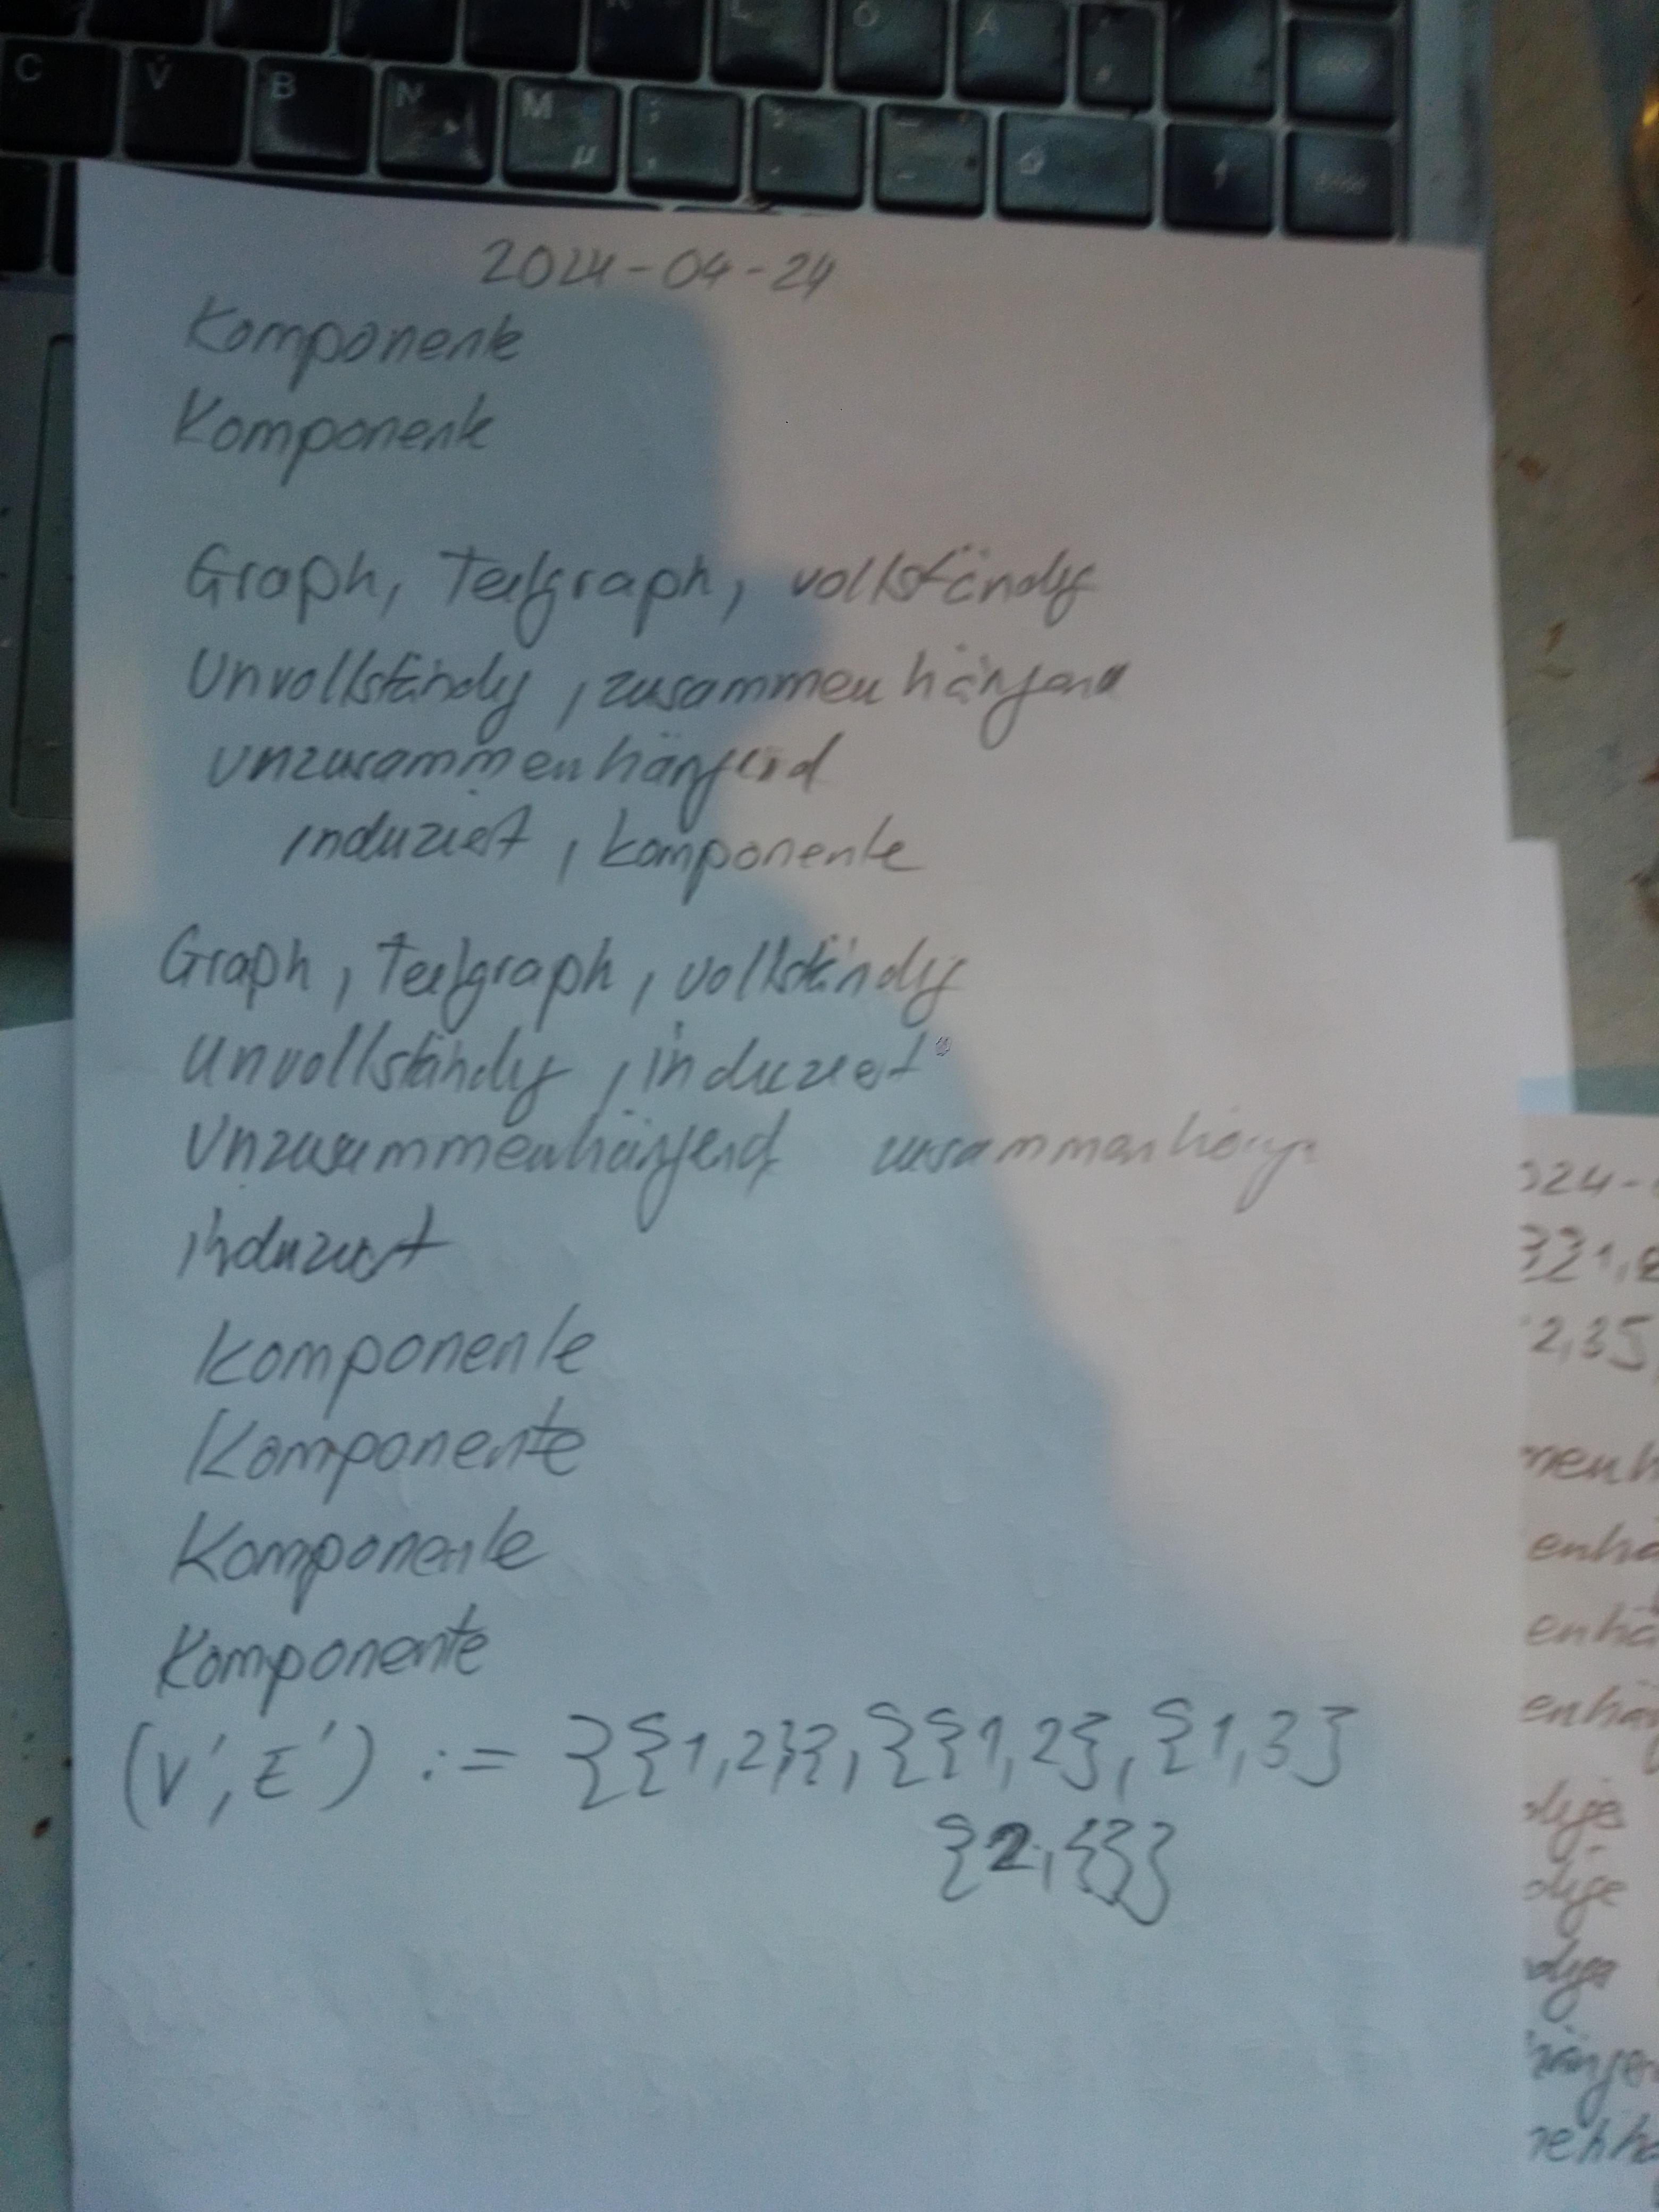 C V B N M µ
Ö Ä
2024-04-24
Komponente
Komponente
Graph, Teilgraph, vollständig
Unvollständig, zusammenhängend
unzusammenhängend
induziert, komponente
Graph, Teilgraph, vollständig
Unvollständig, induziert
Unzusammenhängend zusammenhäng
induziert
Komponente
Komponente
Komponente
Komponente
(V', E') := {{1,2}}, {{1,2}, {1,3}
{2,{}}